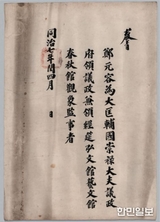 敎旨
鄭元容爲大匡輔國崇祿大夫議政
府領議政兼領經筵弘文館藝文館
春秋館觀象監事者
同治七年閏四月 日
안민일보